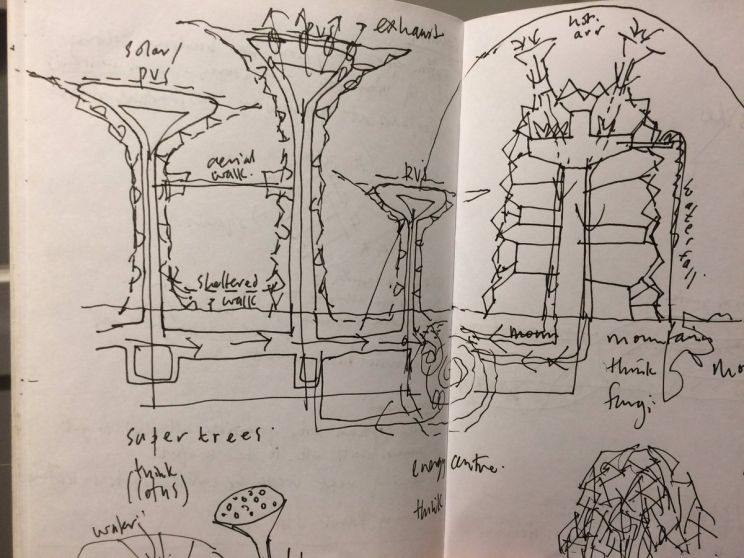 solar/
pvs
pvs
exhaust
hot
air
aerial
walk.
pvs
sheltered
walk
waterfall.
mountain
think
fungi
super trees.
think
(lotus)
energy centre.
think